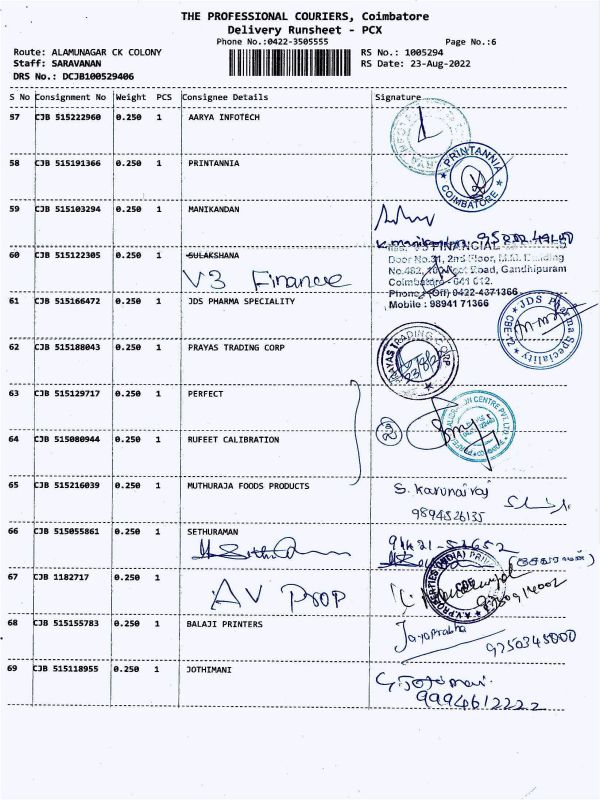 THE PROFESSIONAL COURIERS, Coimbatore
Delivery Runsheet - PCX
Phone No.:0422-3505555 Page No.:6
Route: ALAMUNAGAR CK COLONY RS No.: 1005294
Staff: SARAVANAN RS Date: 23-Aug-2022
DRS No.: DCJB100529406
S No Consignment No Weight PCS Consignee Details Signature
57 CJB 515222960 0.250 1 AARYA INFOTECH
58 CJB 515191366 0.250 1 PRINTANNIA
PRINTANNIA
COIMBATORE
59 CJB 515103294 0.250 1 MANIKANDAN
60 CJB 515122305 0.250 1 SULAKSHANA
V3 Finance
V3 FINANCIAL
Door No.31, 2nd Floor, Building
Road, Gandhipuram
Coimbatore - 641 012.
Phone : (Off) 0422-4371366
Mobile : 98941 71366
61 CJB 515166472 0.250 1 JDS PHARMA SPECIALITY
JDS Pharma Speciality
62 CJB 515188043 0.250 1 PRAYAS TRADING CORP
PRAYAS TRADING CORP
63 CJB 515129717 0.250 1 PERFECT
64 CJB 515080944 0.250 1 RUFEET CALIBRATION
2
65 CJB 515216039 0.250 1 MUTHURAJA FOODS PRODUCTS
S. Karunairaj
9894526135
66 CJB 515055861 0.250 1 SETHURAMAN
67 CJB 1182717 0.250 1
AV Prop
68 CJB 515155783 0.250 1 BALAJI PRINTERS
Jayaprabha
9750345000
69 CJB 515118955 0.250 1 JOTHIMANI
9994612222